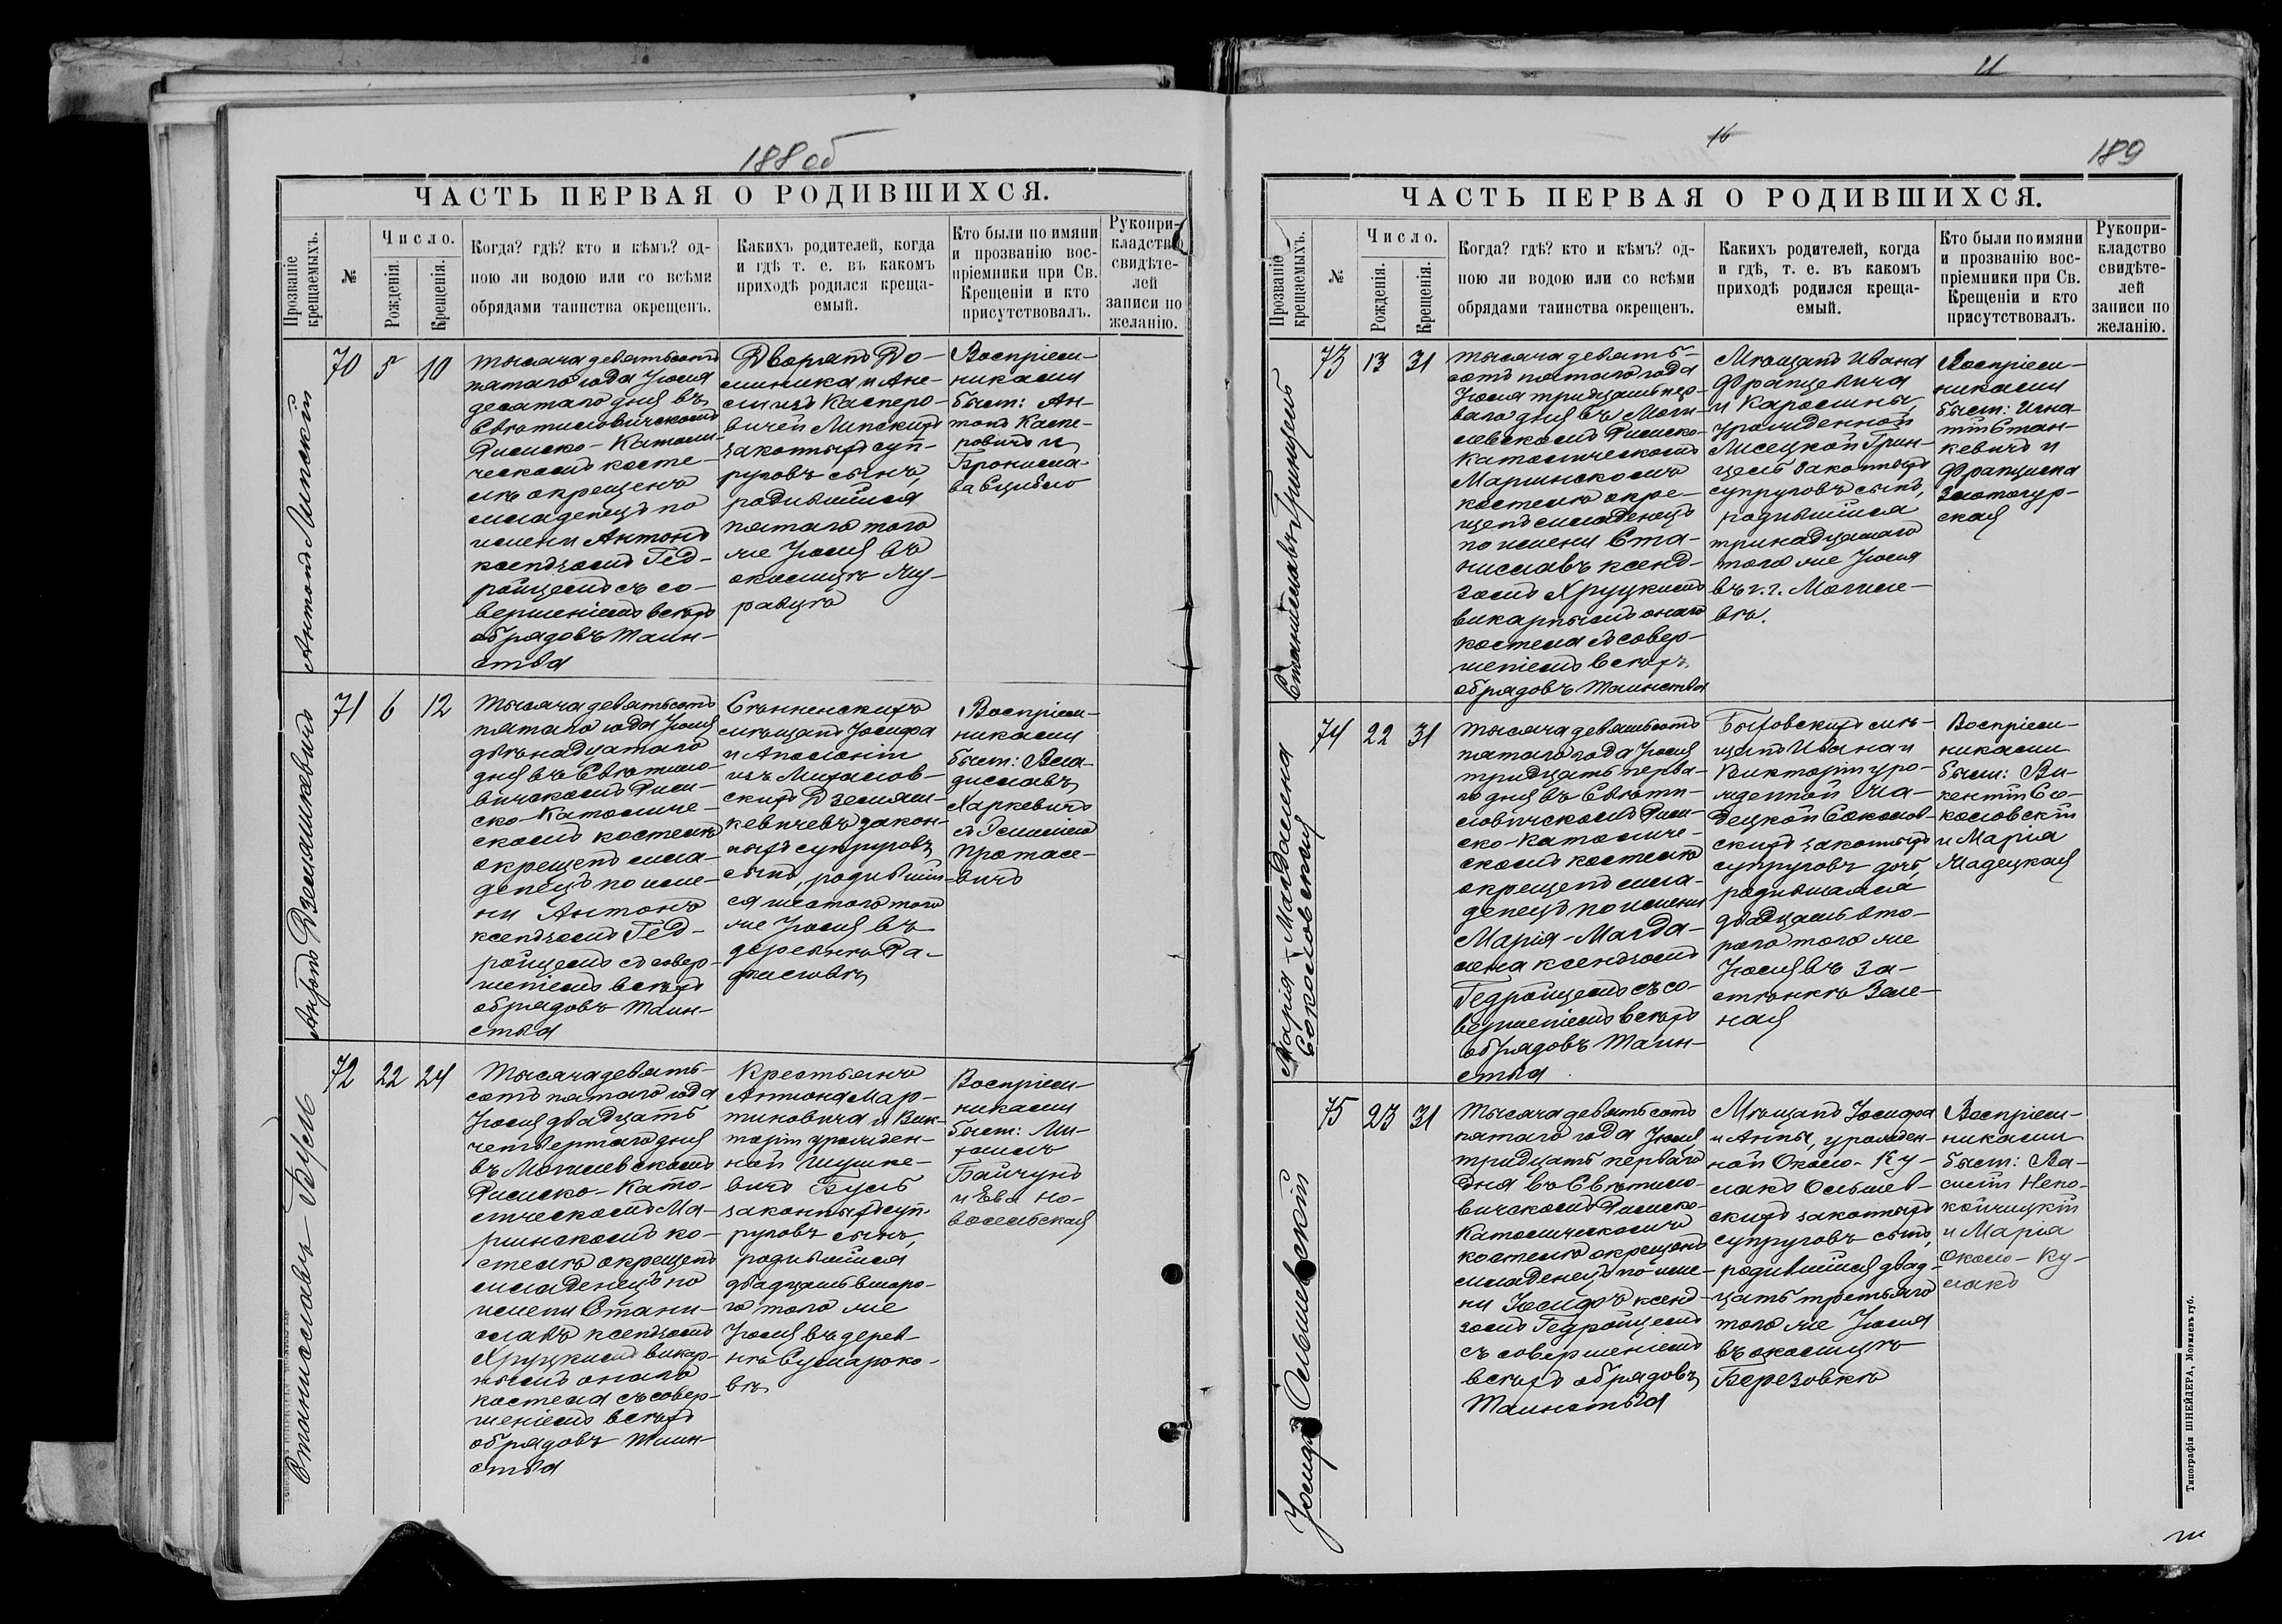 188 об
ЧАСТЬ ПЕРВАЯ О РОДИВШИХСЯ.
Прозваніе крещаемыхъ.
№
Число.
Рожденія.
Крещенія.
Когда? гдѣ? кто и кѣмъ? од-
ною ли водою или со всѣми
обрядами таинства окрещенъ.
Какихъ родителей, когда
и гдѣ т. е. въ какомъ
приходѣ родился креща-
емый.
Кто были по имяни
и прозванію вос-
пріемники при Св.
Крещеніи и кто
присутствовалъ.
Рукопри-
кладство
свидѣте-
лей
записи по
желанію.
Антонъ Липскій
70
5
10
Тысяча девятьсотъ
пятаго года Іюля
десятаго дня въ
Свѣтиловическомъ
Римско-Католи-
ческомъ косте-
лѣ окрещенъ
младенецъ по
имени Антонъ
ксендзомъ Гед-
ройцемъ съ со-
вершеніемъ всѣхъ
обрядовъ Таин-
ства
Дворянъ До-
миника и Ане-
ли изъ Касперо-
вичей Липскихъ
законныхъ суп-
руговъ сынъ,
родившійся
пятаго того
же Іюля въ
околицѣ Жу-
равцѣ
Воспріем-
никами
были: Ан-
тонъ Каспе-
ровичъ и
Бронисла-
ва
Антонъ Дземяшкевичъ
71
6
12
Тысяча девятьсотъ
пятаго года Іюля
двѣнадцатаго
дня въ Свѣтило-
вичскомъ Рим-
ско-Католиче-
скомъ костелѣ
окрещенъ мла-
денецъ по име-
ни Антонъ
ксендзомъ Гед-
ройцемъ съ совер-
шеніемъ всѣхъ
обрядовъ Таин-
ства
Сѣнненскихъ
мѣщанъ Іосифа
и Аполоніи
изъ Михалов-
скихъ Дземяш-
кевичевъ закон-
ныхъ супруговъ
сынъ, родившій-
ся шестого того
же Іюля въ
деревнѣ Ра-
Воспріем-
никами
были: Вла-
диславъ
Харкевичъ
и
Протасе-
вичъ
Станиславъ Буль
72
22
24
Тысяча девять-
сотъ пятаго года
Іюля двадцать
четвертаго дня
въ Могилевскомъ
Римско-Като-
лическомъ Ма-
ріинскомъ ко-
стелѣ окрещенъ
младенецъ по
имени Стани-
славъ ксендзомъ
Хруцкимъ викар-
нымъ онаго
костела съ совер-
шеніемъ всѣхъ
обрядовъ Таин-
ства
Крестьянъ
Антона Мар-
тиновича и Вик-
торіи урожден-
ной Шушке-
вичъ Буль
законныхъ суп-
руговъ сынъ,
родившійся
двадцать второ-
го того же
Іюля въ дерев-
нѣ Сумароко-
вѣ
Воспріем-
никами
были: Ми-
хаилъ
Байчунъ
и Ева Но-
восельская
16
189
ЧАСТЬ ПЕРВАЯ О РОДИВШИХСЯ.
Прозваніе крещаемыхъ.
№
Число.
Рожденія.
Крещенія.
Когда? гдѣ? кто и кѣмъ? од-
ною ли водою или со всѣми
обрядами таинства окрещенъ.
Какихъ родителей, когда
и гдѣ, т. е. въ какомъ
приходѣ родился креща-
емый.
Кто были по имяни
и прозванію вос-
пріемники при Св.
Крещеніи и кто
присутствовалъ.
Рукопри-
кладство
свидѣте-
лей
записи по
желанію.
Станиславъ Гринцель
73
13
31
Тысяча девять-
сотъ пятаго года
Іюля тридцать пер-
ваго дня въ Моги-
левскомъ Римско-
Католическомъ
Маріинскомъ
костелѣ окре-
щенъ младенецъ
по имени Ста-
ниславъ ксенд-
зомъ Хруцкимъ
викарнымъ онаго
костела съ совер-
шеніемъ всѣхъ
обрядовъ Таинства
Мѣщанъ Ивана
Францевича
и Каролины,
урожденной
Лисецкой Грин-
цель законныхъ
супруговъ сынъ,
родившійся
тринадцатаго
того же Іюля
въ г. г. Могиле-
вѣ.
Воспріем-
никами
были: Игна-
тій Стан-
кевичъ и
Франциска
Злотогур-
ская
Марія-Магдалена
Соколовская
74
22
31
Тысяча девятьсотъ
пятаго года Іюля
тридцать перва-
го дня въ Свѣти-
ловичскомъ Рим-
ско-Католиче-
скомъ костелѣ
окрещенъ мла-
денецъ по имени
Марія-Магда-
лена ксендзомъ
Гедройцемъ съ со-
вершеніемъ всѣхъ
обрядовъ Таин-
ства
Быховскихъ мѣ-
щанъ Ивана и
Викторіи уро-
жденной Ма-
децкой Соколов-
скихъ законныхъ
супруговъ дочь,
родившаяся
двадцать вто-
раго того же
Іюля въ за-
стѣнкѣ Зеле-
ная
Воспріем-
никами
были: Ви-
кентій Со-
коловскій
и Марія
Мадецкая
Іосифъ Ольшевскій
75
23
31
Тысяча девятьсотъ
пятаго года Іюля
тридцать перваго
дня въ Свѣтило-
вичскомъ Римско-
Католическомъ
костелѣ окрещенъ
младенецъ по име-
ни Іосифъ ксенд-
зомъ Гедройцемъ
съ совершеніемъ
всѣхъ обрядовъ
Таинства
Мѣщанъ Іосифа
и Анны, урожден-
ной Около-Ку-
лакъ Ольшев-
скихъ законныхъ
супруговъ сынъ,
родившійся двад-
цать третьяго
того же Іюля
въ околицѣ
Березовкѣ
Воспріем-
никами
были: Ва-
силій Непо-
койчицкій
и Марія
Около-Ку-
лакъ
Типографія ШНЕЙДЕРА, Могилевъ губ.